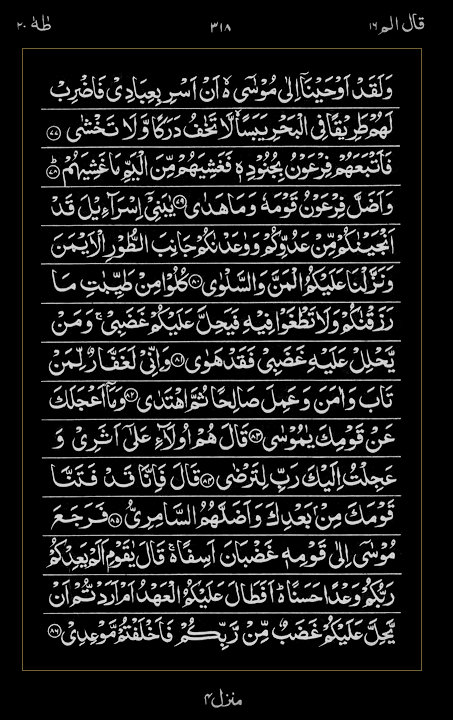 قال الم ۱۶
۳۱۸
طٰهٰ ۲۰
وَلَقَدْ اَوْحَيْنَاۤ اِلٰى مُوْسٰۤى ەۙ اَنْ اَسْرِ بِعِبَادِىْ فَاضْرِبْ
لَهُمْ طَرِيْقًا فِى الْبَحْرِ يَبَسًاۙ لَّا تَخٰفُ دَرَكًا وَّلَا تَخْشٰى ﴿۷۷﴾
فَاَتْبَعَهُمْ فِرْعَوْنُ بِجُنُوْدِهٖ فَغَشِيَهُمْ مِّنَ الْيَمِّ مَا غَشِيَهُمْ ؕ ﴿۷۸﴾
وَاَضَلَّ فِرْعَوْنُ قَوْمَهٗ وَمَا هَدٰى ﴿۷۹﴾ يٰبَنِىْۤ اِسْرَآءِيْلَ قَدْ
اَنْجَيْنٰكُمْ مِّنْ عَدُوِّكُمْ وَوٰعَدْنٰكُمْ جَانِبَ الطُّوْرِ الْاَيْمَنَ
وَنَزَّلْنَا عَلَيْكُمُ الْمَنَّ وَالسَّلْوٰى ﴿۸۰﴾ كُلُوْا مِنْ طَيِّبٰتِ مَا
رَزَقْنٰكُمْ وَلَا تَطْغَوْا فِيْهِ فَيَحِلَّ عَلَيْكُمْ غَضَبِىْ ۚ وَمَنْ
يَّحْلِلْ عَلَيْهِ غَضَبِىْ فَقَدْ هَوٰى ﴿۸۱﴾ وَاِنِّىْ لَغَفَّارٌ لِّمَنْ
تَابَ وَاٰمَنَ وَعَمِلَ صَالِحًا ثُمَّ اهْتَدٰى ﴿۸۲﴾ وَمَاۤ اَعْجَلَكَ
عَنْ قَوْمِكَ يٰمُوْسٰى ﴿۸۳﴾ قَالَ هُمْ اُولَآءِ عَلٰٓى اَثَرِىْ وَ
عَجِلْتُ اِلَيْكَ رَبِّ لِتَرْضٰى ﴿۸۴﴾ قَالَ فَاِنَّا قَدْ فَتَنَّا
قَوْمَكَ مِنْۢ بَعْدِكَ وَاَضَلَّهُمُ السَّامِرِىُّ ﴿۸۵﴾ فَرَجَعَ
مُوْسٰٓى اِلٰى قَوْمِهٖ غَضْبَانَ اَسِفًا ەۚ قَالَ يٰقَوْمِ اَلَمْ يَعِدْكُمْ
رَبُّكُمْ وَعْدًا حَسَنًا ەؕ اَفَطَالَ عَلَيْكُمُ الْعَهْدُ اَمْ اَرَدْتُّمْ اَنْ
يَّحِلَّ عَلَيْكُمْ غَضَبٌ مِّنْ رَّبِّكُمْ فَاَخْلَفْتُمْ مَّوْعِدِىْ ﴿۸۶﴾
منزل ۴